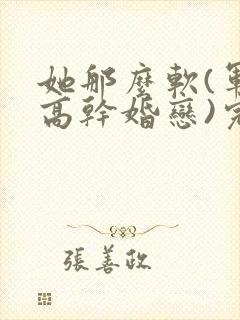 她那麼軟(軍
高幹婚戀)完
張善政